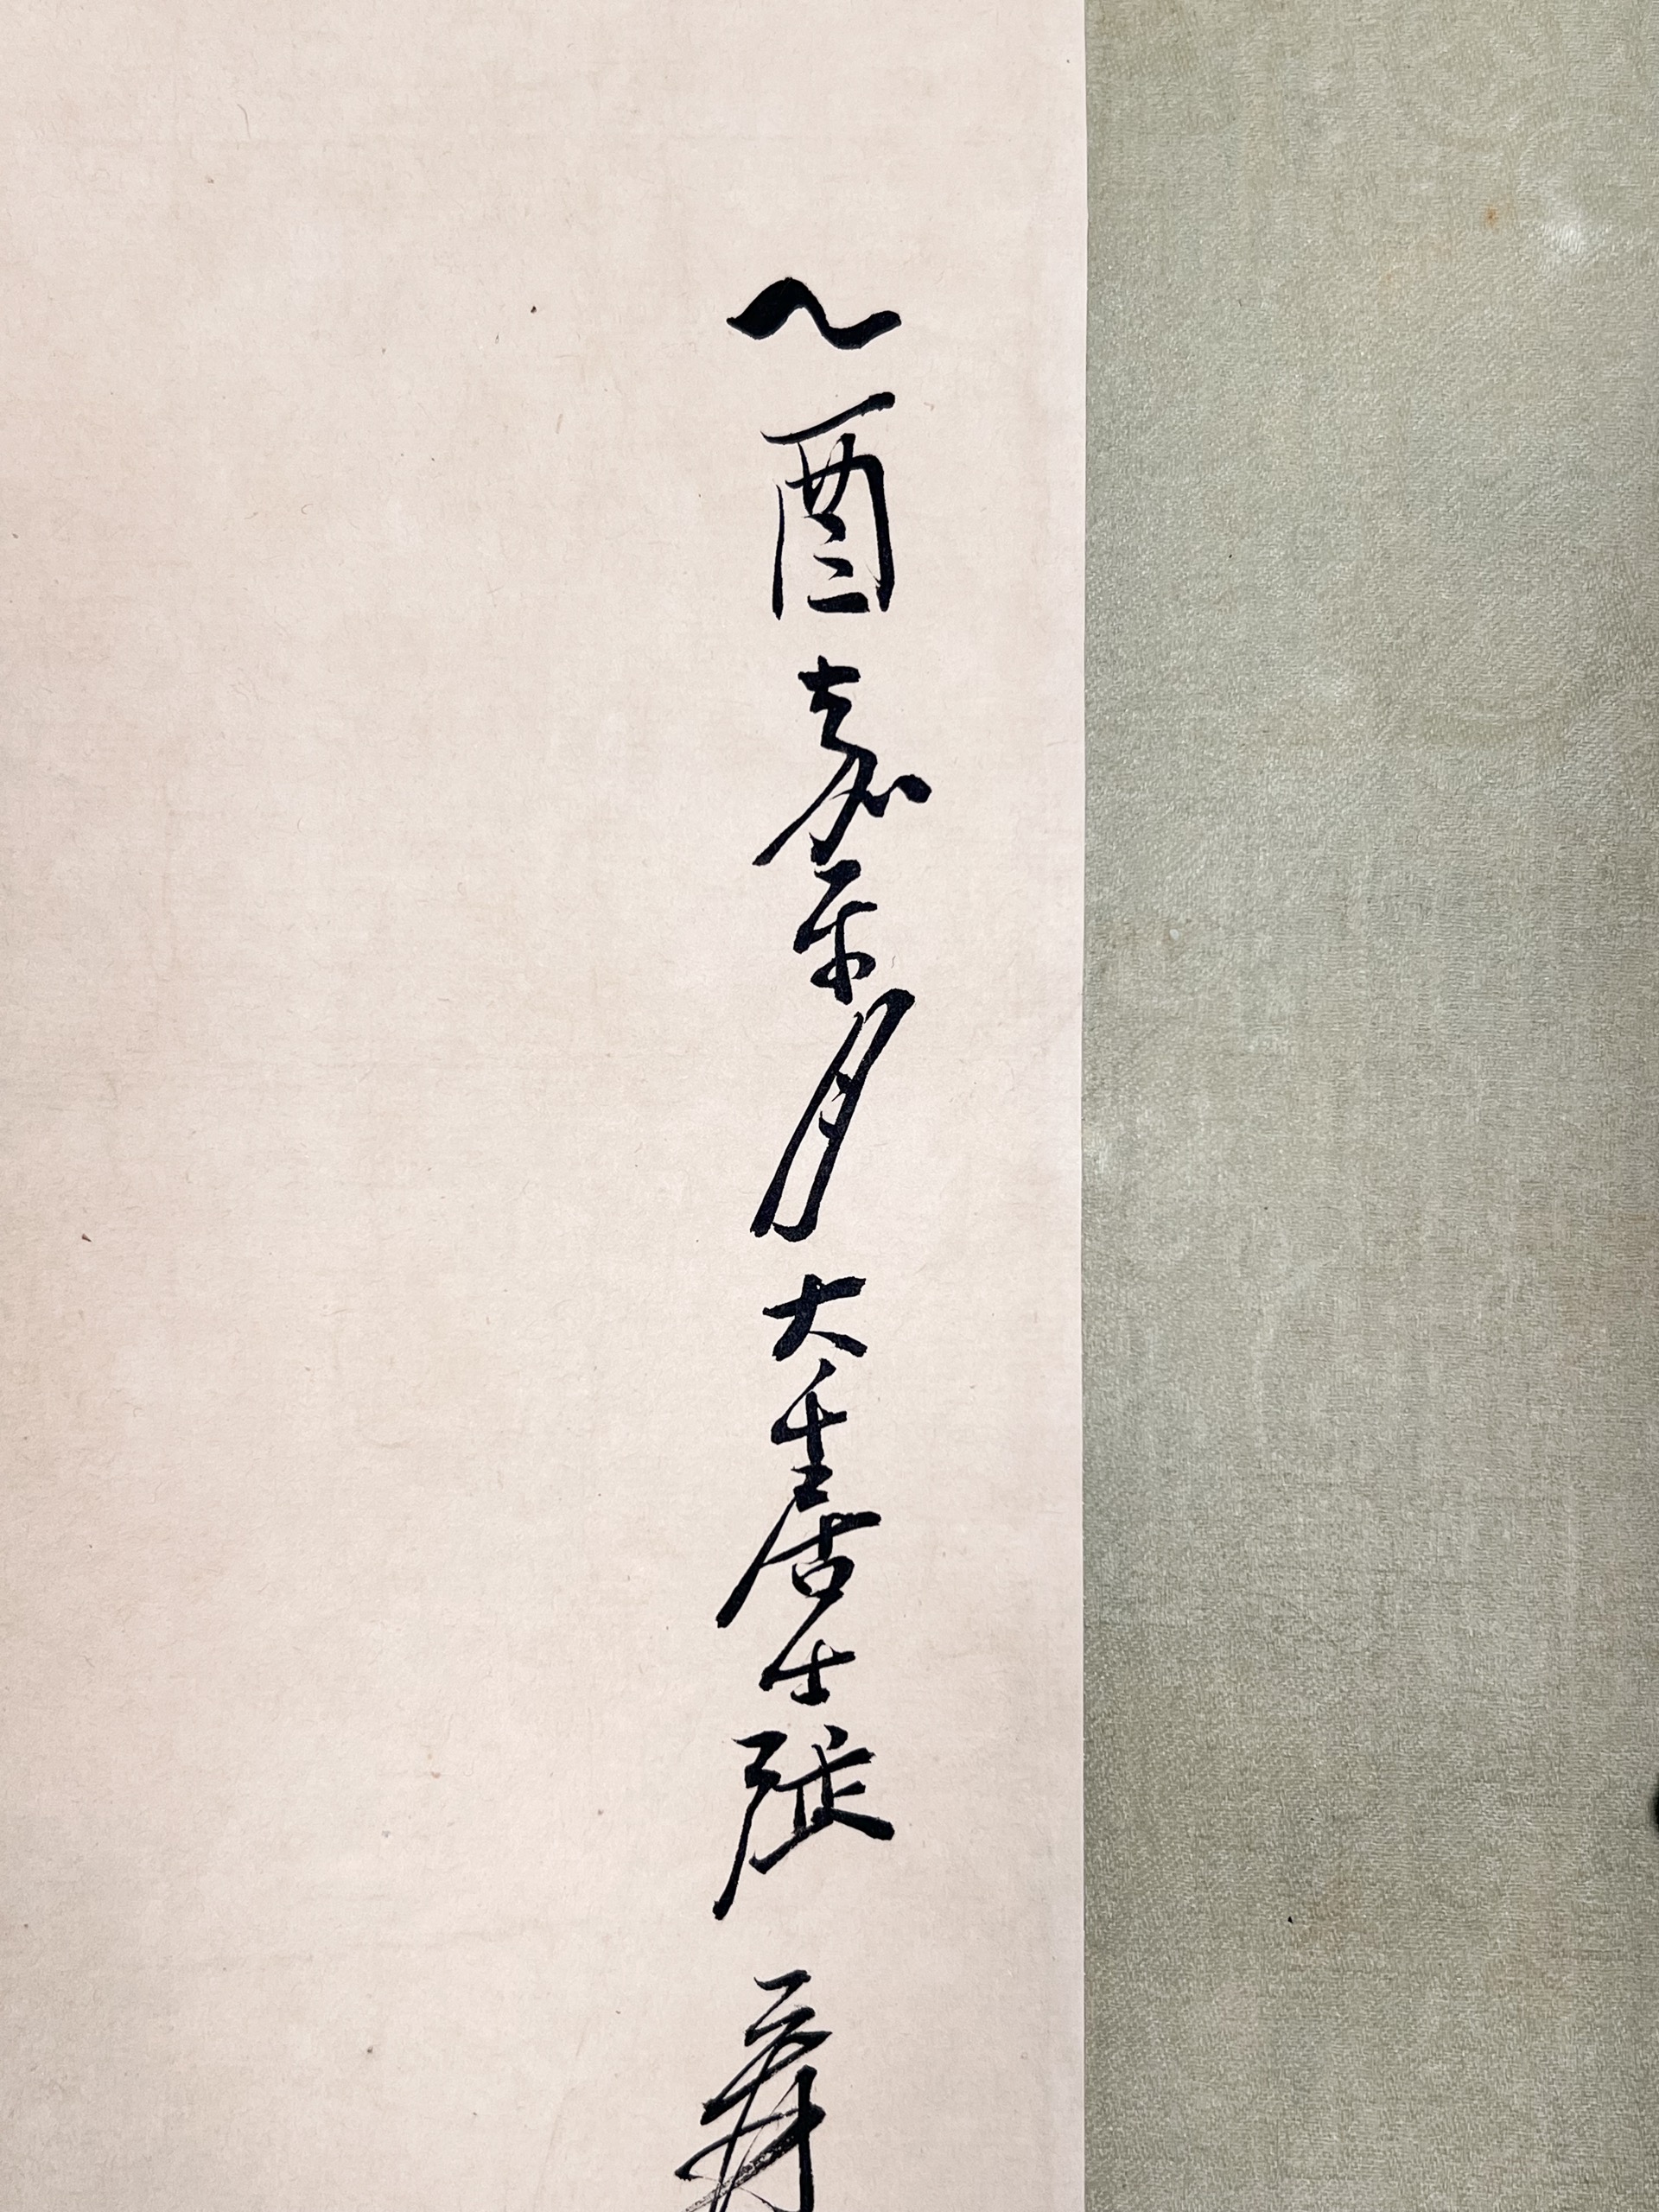 乙酉嘉平月大千居士張爰